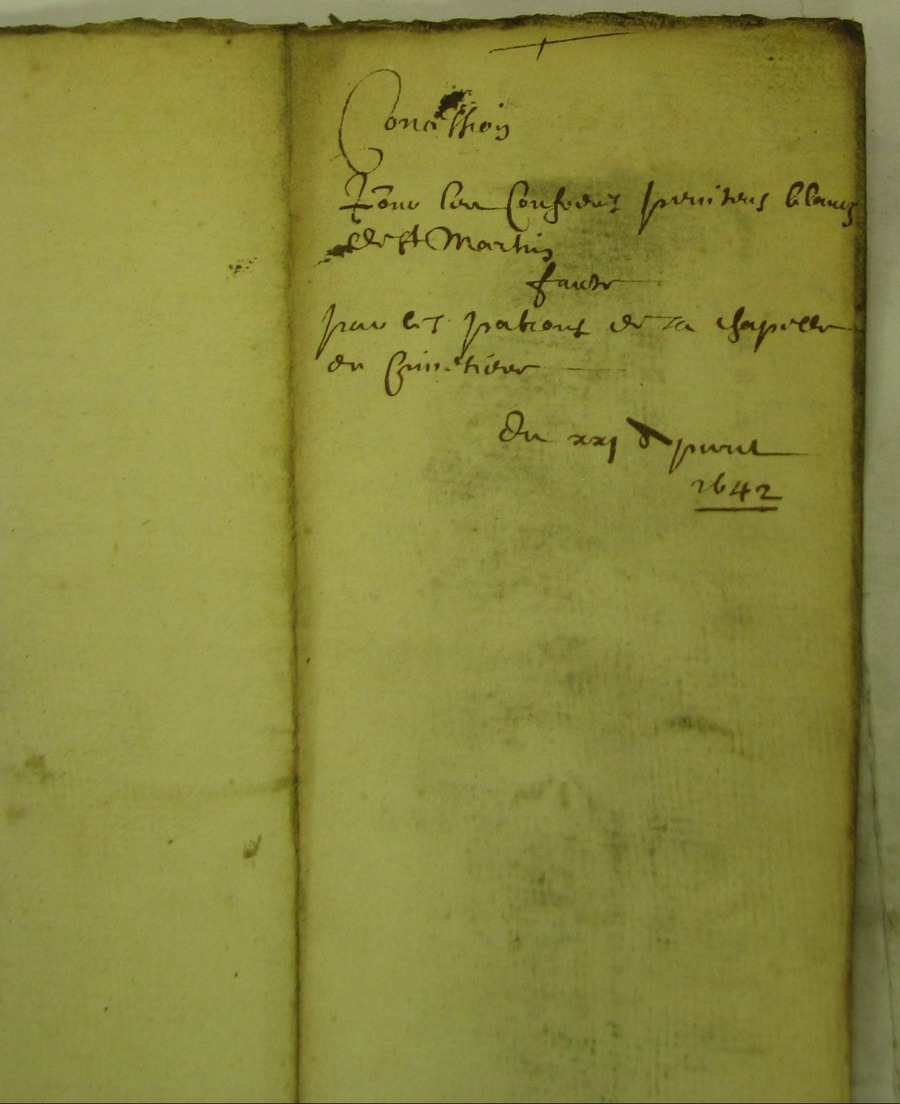 Concession
Pour les Confreres penitens blancs
de st Martin
faicte
par les patrons de la chapelle
du Cimetiere
du xxj d'apvril
1642